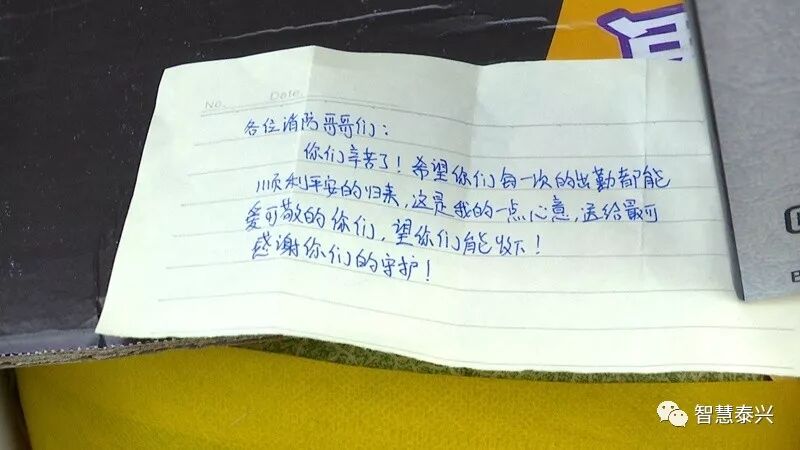 No.
Date.
各位消防哥哥们：
你们辛苦了！希望你们每一次的出勤都能
顺利平安的归来，这是我的一点心意，送给最可
爱可敬的你们，望你们能收下！
感谢你们的守护！
智慧泰兴